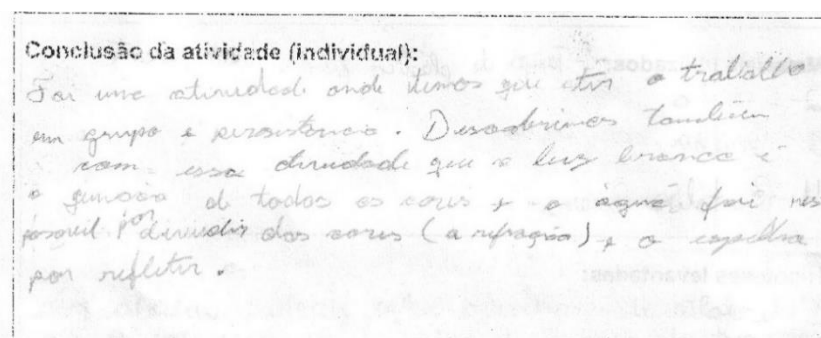 Conclusão da atividade (individual):
Foi uma atividade onde temos que ter o trabalho
em grupo e persistência. Descobrimos também
com essa atividade que a luz branca é
a junção de todas as cores e a água foi res
ponsável por dividir das cores (a refração) e o espelho
por refletir.